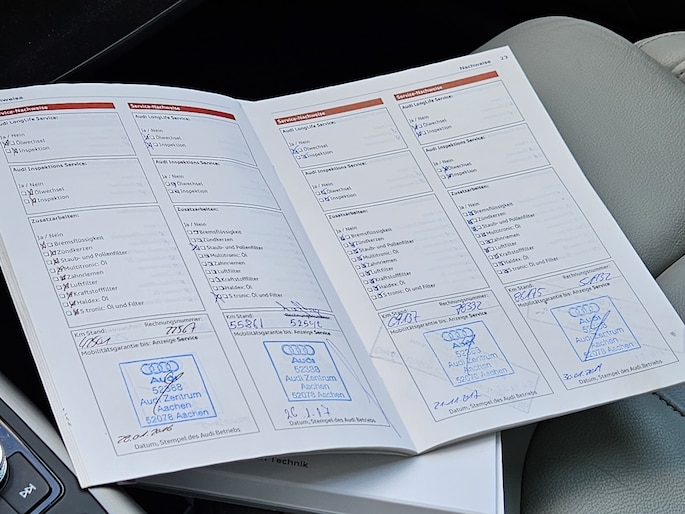 Nachweise
Service-Nachweise
Audi LongLife Service:
Ja / Nein
Ölwechsel
Inspektion
Audi Inspektions Service:
Ja / Nein
Ölwechsel
Inspektion
Zusatzarbeiten:
Ja / Nein
Bremsflüssigkeit
Zündkerzen
Staub- und Pollenfilter
Multitronic Öl
Zahnriemen
Luftfilter
Kraftstofffilter
Haldex Öl
S tronic Öl und Filter
Km Stand:
Rechnungsnummer:
Mobilitätsgarantie bis: Anzeige Service
Audi
52388
Audi Zentrum
Aachen
52078 Aachen
Datum, Stempel des Audi Betriebs
Service-Nachweise
Audi LongLife Service:
Ja / Nein
Ölwechsel
Inspektion
Audi Inspektions Service:
Ja / Nein
Ölwechsel
Inspektion
Zusatzarbeiten:
Ja / Nein
Bremsflüssigkeit
Zündkerzen
Staub- und Pollenfilter
Multitronic Öl
Zahnriemen
Luftfilter
Kraftstofffilter
Haldex Öl
S tronic Öl und Filter
Km Stand:
55861
Mobilitätsgarantie bis: Anzeige Service
Audi
52388
Audi Zentrum
Aachen
52078 Aachen
26.1.17
Datum, Stempel des Audi Betriebs
Nachweise 23
Service-Nachweise
Audi LongLife Service:
Ja / Nein
Ölwechsel
Inspektion
Audi Inspektions Service:
Ja / Nein
Ölwechsel
Inspektion
Zusatzarbeiten:
Ja / Nein
Bremsflüssigkeit
Zündkerzen
Staub- und Pollenfilter
Multitronic Öl
Zahnriemen
Luftfilter
Kraftstofffilter
Haldex Öl
S tronic Öl und Filter
Km Stand:
Rechnungsnummer:
Mobilitätsgarantie bis: Anzeige Service
Audi
Audi Zentrum
Aachen
52078 Aachen
Datum, Stempel des Audi Betriebs
Service-Nachweise
Audi LongLife Service:
Ja / Nein
Ölwechsel
Inspektion
Audi Inspektions Service:
Ja / Nein
Ölwechsel
Inspektion
Zusatzarbeiten:
Ja / Nein
Bremsflüssigkeit
Zündkerzen
Staub- und Pollenfilter
Multitronic Öl
Zahnriemen
Luftfilter
Kraftstofffilter
Haldex Öl
S tronic Öl und Filter
Km Stand:
Rechnungsnummer:
Mobilitätsgarantie bis: Anzeige Service
Audi
Audi Zentrum
Aachen
52078 Aachen
Datum, Stempel des Audi Betriebs
Technik